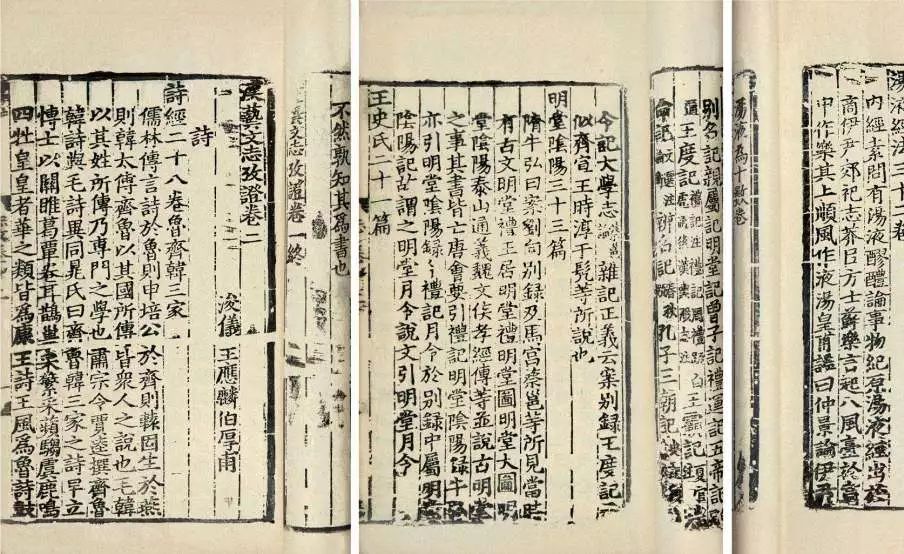 不然孰知其爲書也
藝文志攷證卷一終
漢藝文志攷證卷二
浚儀 王應麟伯厚甫
詩
詩經二十八卷魯齊韓三家
儒林傳言詩於魯則申培公於齊則轅固生於燕
則韓太傅齊魯以其國所傳皆衆人之說也毛韓
以其姓所傳乃專門之學也肅宗令賈逵撰齊魯
韓詩與毛詩異同晁氏曰齊魯韓三家之詩早立
博士以關雎葛覃卷耳鵲巢采蘩采蘋騶虞鹿鳴
四牡皇皇者華之類皆爲康王詩王風爲魯詩鼓
別名記親屬記明堂記曾子記禮運記五帝記
王度記 王霸記 夏官
孔子三朝記
今記大學志 雜記正義云案別錄王度記
似齊宣王時淳于髡等所說也
明堂陰陽三十三篇
隋牛弘曰案劉向別錄及馬宮蔡邕等所見當時
有古文明堂禮王居明堂禮明堂圖明堂大圖明
堂陰陽泰山通義魏文侯孝經傳等並說古明堂
之事其書皆亡唐會要引禮記明堂陰陽錄牛
亦引明堂陰陽錄今禮記月令於別錄中屬明堂
陰陽記故謂之明堂月令說文引明堂月令
王史氏二十一篇
湯液經法三十二卷
內經素問有湯液醪醴論事物紀原湯液經出於
商伊尹郊祀志莽以方士蘇樂言起八風臺於宮
中作樂其上順風作液湯皇甫謐曰仲景論伊尹